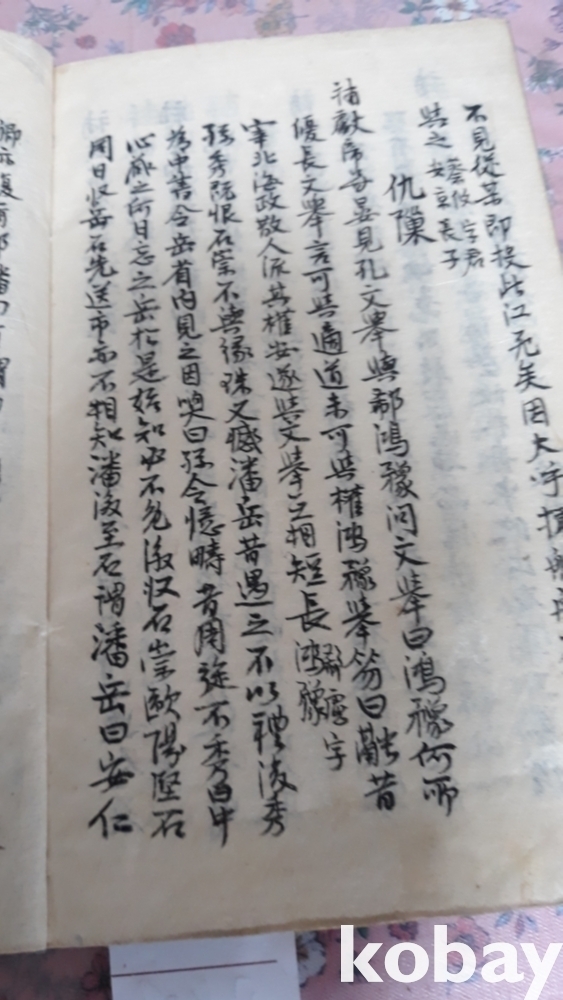 不見從某即投此江死矣因大呼
與之 蔡攸字君 長子
仇隟
補獻帝嘗晏見孔文擧與郗鴻豫問文擧曰鴻豫何所
優長文擧言可與適道未可與權鴻豫擧笏曰融昔
宰北海政散人流其權安遂與文擧互相短長 郗慮字鴻豫
孫秀既恨石崇不與綠珠又憾潘岳昔遇之不以禮後秀
爲中書令岳省內見之因喚曰孫令憶疇昔周旋不秀曰中
心藏之何日忘之岳於是始知必不免後收石崇歐陽堅石
同日收岳石先送市亦不相知潘後至石謂潘岳曰安仁
卿亦復爾邪潘曰可謂
kobay